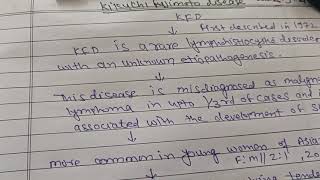 Kikuchi Fujimoto disease
KFD
first described in 1972
KFD is a rare lymphohistiocytic disorder
with an unknown etiopathogenesis.
This disease is misdiagnosed as malig
lymphoma in upto 1/3rd of cases and i
associated with the development of S
more common in young women of Asia
F:M // 2:1
tend